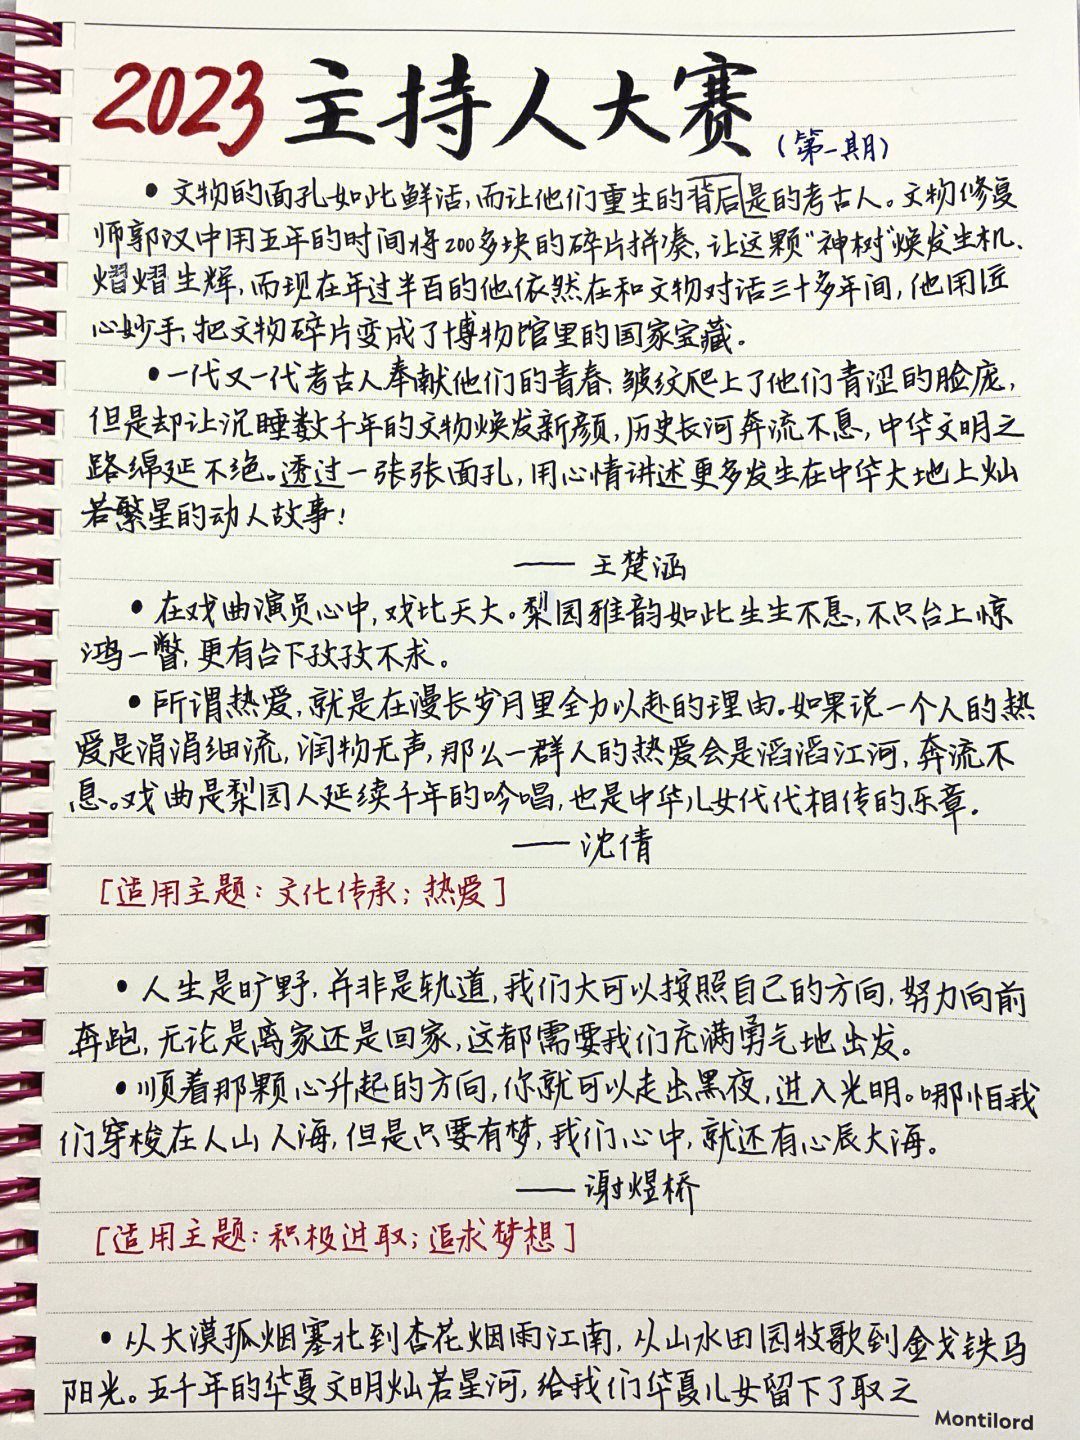 2023 主持人大赛
(第一期)
• 文物的面孔如此鲜活,而让他们重生的背后是的考古人。文物修复
师郭汉中用五年的时间将200多块的碎片拼凑,让这颗"神树"焕发生机、
熠熠生辉,而现在年过半百的他依然在和文物对话三十多年间,他用匠
心妙手,把文物碎片变成了博物馆里的国家宝藏。
• 一代又一代考古人奉献他们的青春;皱纹爬上了他们青涩的脸庞,
但是却让沉睡数千年的文物焕发新颜,历史长河奔流不息,中华文明之
路绵延不绝。透过一张张面孔,用心情讲述更多发生在中华大地上灿
若繁星的动人故事!
—— 王楚涵
• 在戏曲演员心中,戏比天大。梨园雅韵如此生生不息,不只台上惊
鸿一瞥,更有台下孜孜不求。
• 所谓热爱,就是在漫长岁月里全力以赴的理由。如果说一个人的热
爱是涓涓细流,润物无声,那么一群人的热爱会是滔滔江河,奔流不
息。戏曲是梨园人延续千年的吟唱,也是中华儿女代代相传的乐章.
—— 沈倩
[适用主题:文化传承;热爱]
• 人生是旷野,并非是轨道,我们大可以按照自己的方向,努力向前
奔跑,无论是离家还是回家,这都需要我们充满勇气地出发。
• 顺着那颗心升起的方向,你就可以走出黑夜,进入光明。哪怕我
们穿梭在人山人海,但是只要有梦,我们心中,就还有心辰大海。
—— 谢煜桥
[适用主题:积极进取;追求梦想]
• 从大漠孤烟塞北到杏花烟雨江南,从山水田园牧歌到金戈铁马
阳光。五千年的华夏文明灿若星河,给我们华夏儿女留下了取之
Montilord